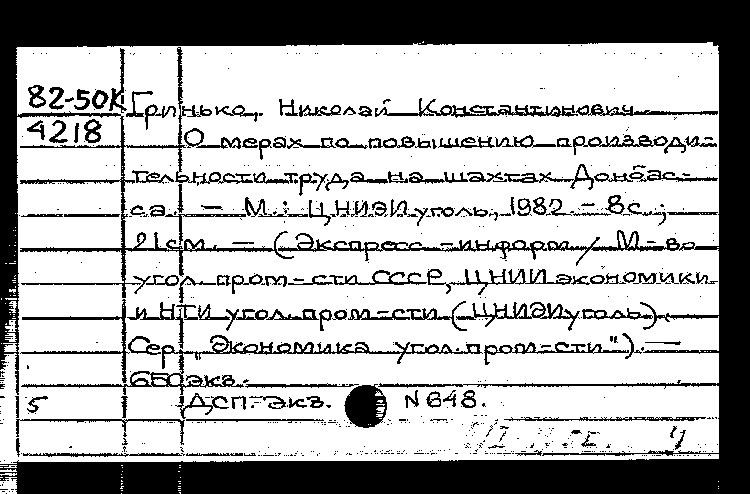 82-50К Гринько, Николай Константинович
4218 О мерах по повышению производи-
тельности труда на шахтах Донбас-
са. — М.: ЦНИЭИуголь, 1982. — 8с.;
21см. — (Экспресс-информ / М-во
угол. пром-сти СССР, ЦНИИ экономики
и НТИ угол. пром-сти (ЦНИЭИуголь).
Сер. „Экономика угол. пром-сти"). —
650экз.
5 ДСП. Экз. N 648.